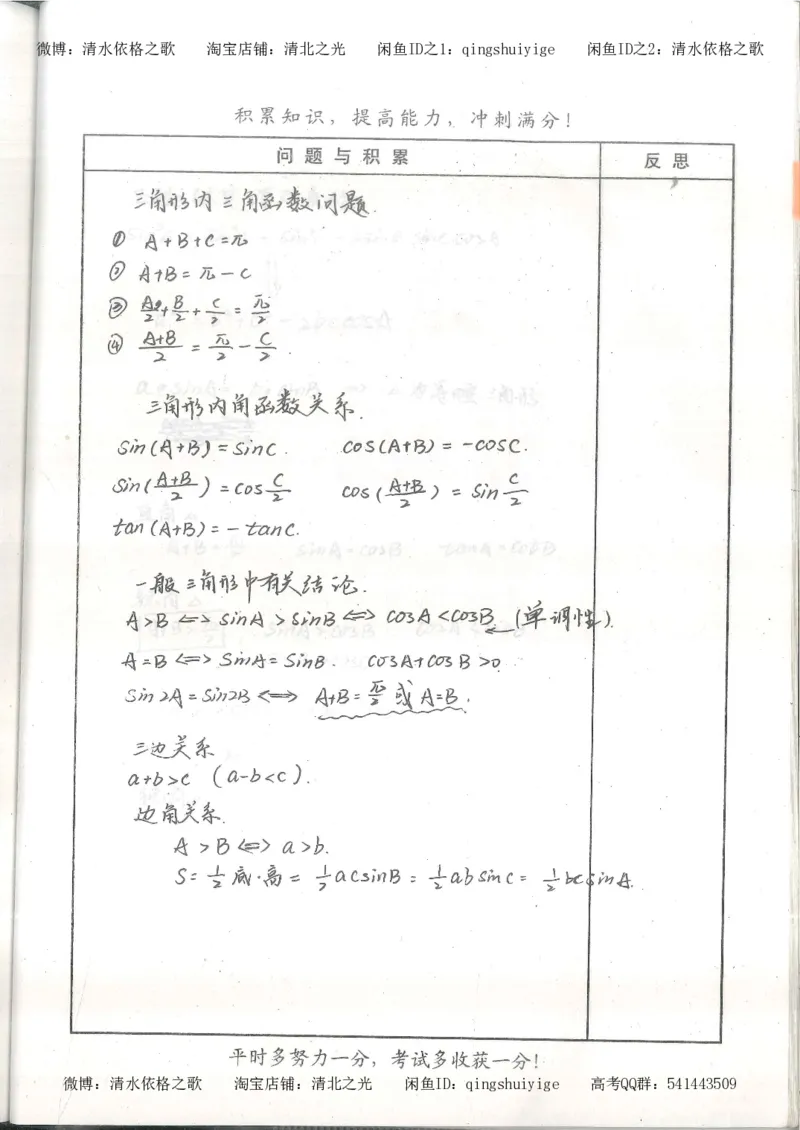 微博：清水依格之歌 淘宝店铺：清北之光 闲鱼ID之1：qingshuiyige 闲鱼ID之2：清水依格之歌
积累知识，提高能力，冲刺满分！
问题与积累 反思
三角形内三角函数问题.
① A+B+C=π
② A+B=π-C
③ A/2+B/2+C/2=π/2
④ (A+B)/2=π/2-C/2.
三角形内角函数关系.
sin(A+B)=sinC. cos(A+B)=-cosC.
sin((A+B)/2)=cos C/2 cos((A+B)/2)=sin C/2
tan(A+B)=-tanC.
一般三角形中有关结论.
A>B⇔sinA>sinB⇔cosA<cosB.(单调性).
A=B⇔SinA=SinB. cosA+cosB>0.
Sin2A=Sin2B⇔A+B=π/2或A=B.
三边关系
a+b>c (a-b<c).
边角关系.
A>B⇔a>b.
S=1/2底·高=1/2acsinB=1/2absinc=1/2bcsinA.
平时多努力一分，考试多收获一分！
微博：清水依格之歌 淘宝店铺：清北之光 闲鱼ID：qingshuiyige 高考QQ群：541443509